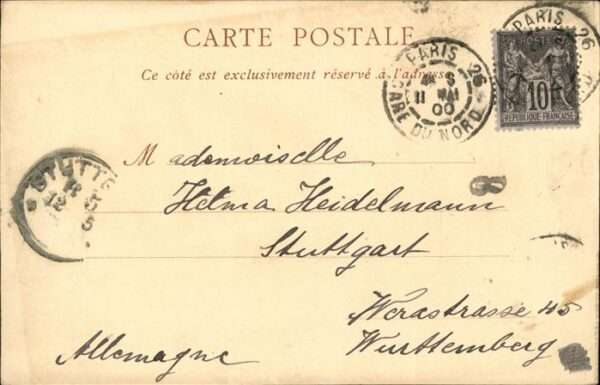 CARTE POSTALE
Ce côté est exclusivement réservé à l'adresse
PARIS 26
GARE DU NORD
11 MAI
00
PARIS 26
10
REPUBLIQUE FRANÇAISE
Mademoiselle
Helma Heidelmann
Stuttgart
Werastrasse 45
Württemberg
Allemagne
STUTTG
12 5
8